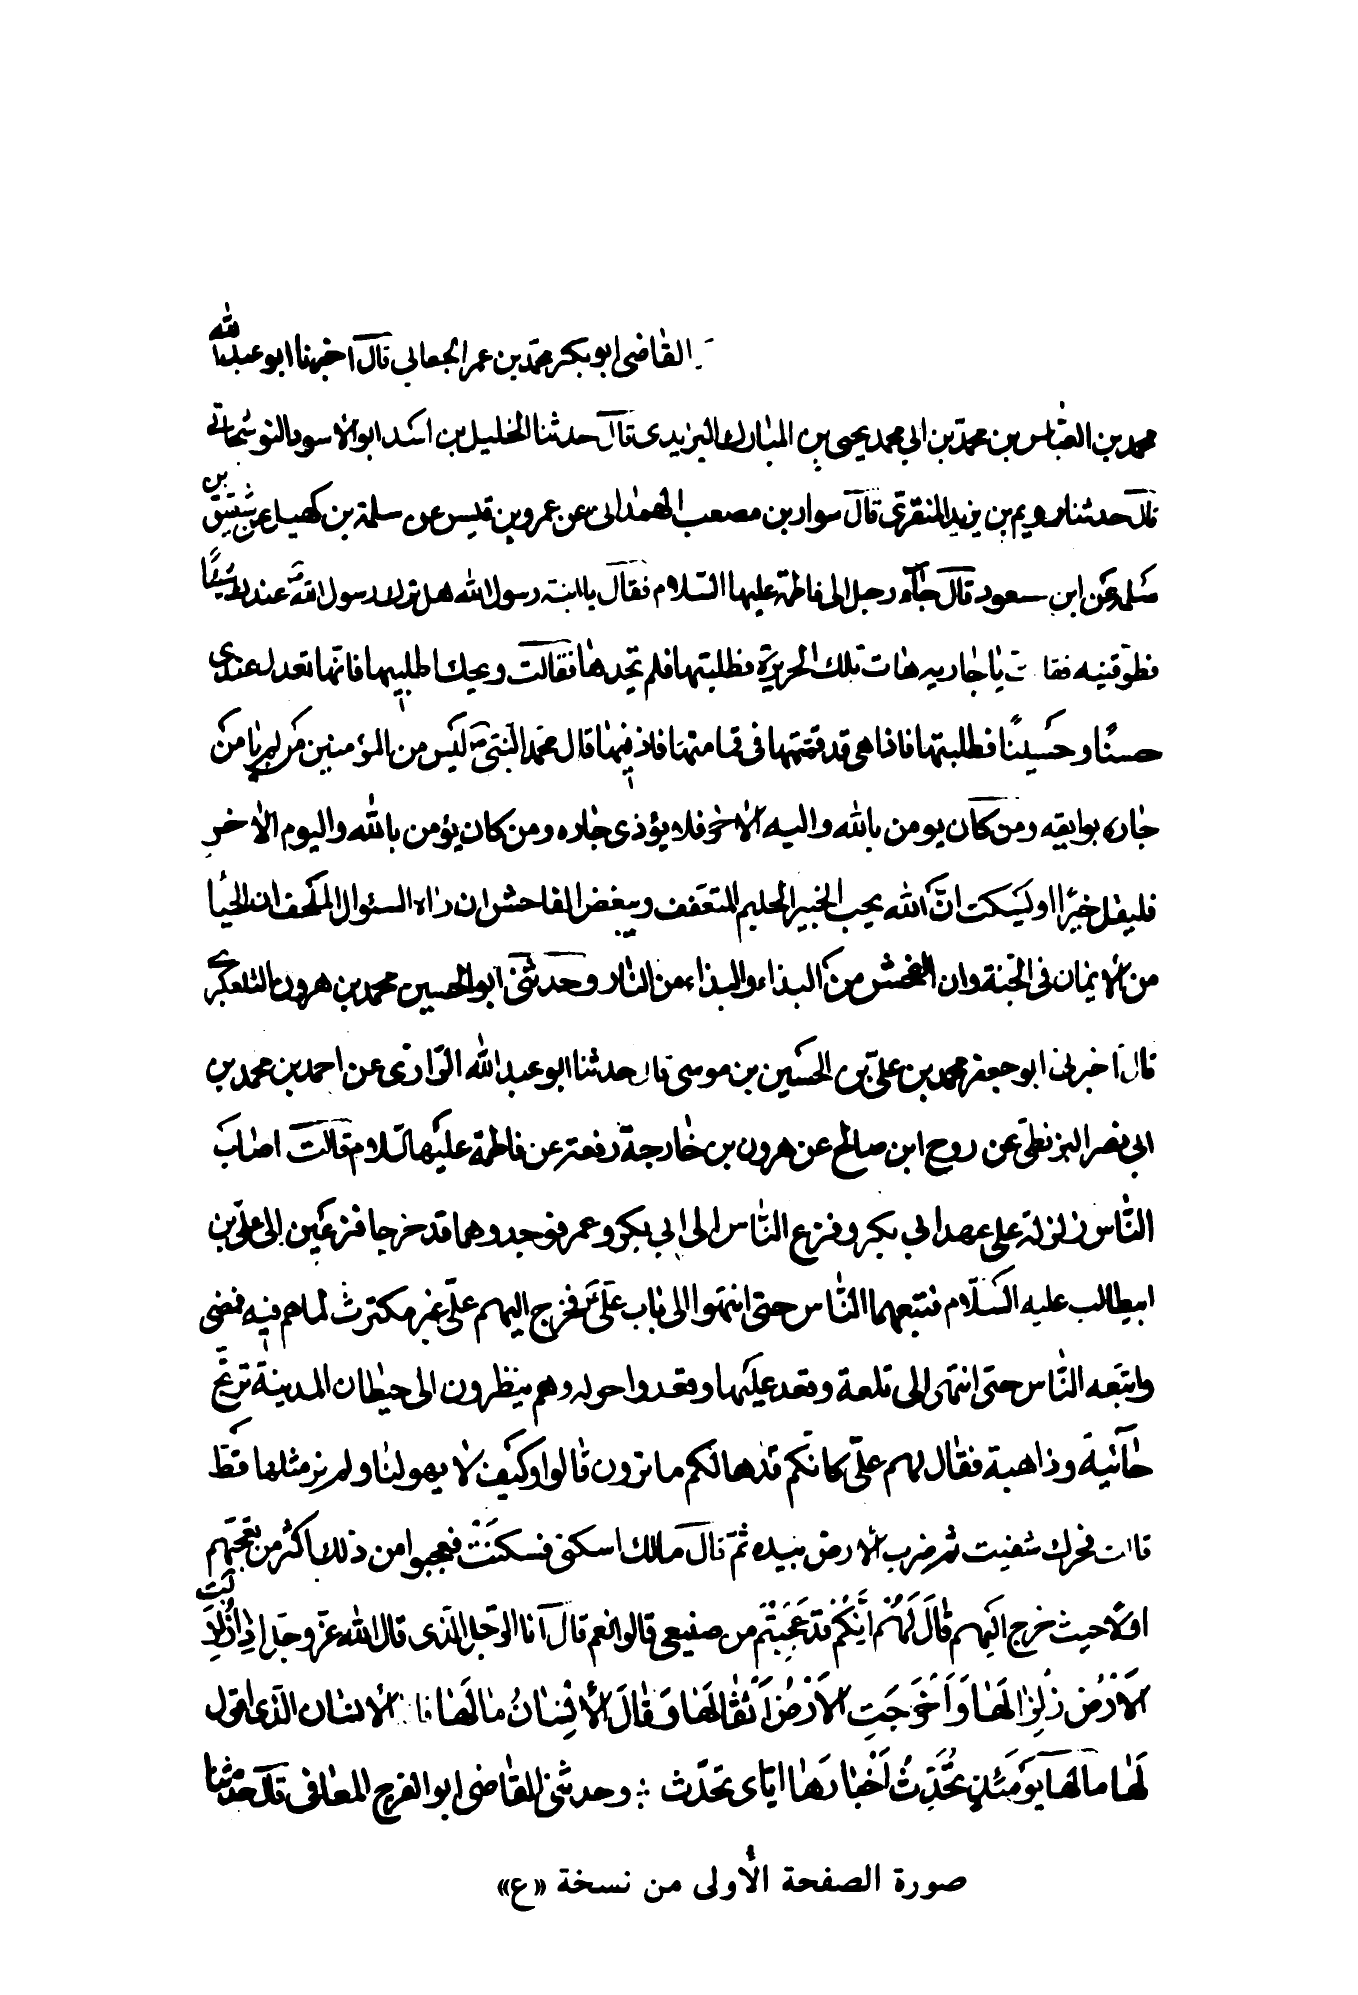 القاضى ابوبكر محمد بن عمر الجعابي قال اخبرنا ابو عبدالله
محمد بن العباس بن محمد بن ابي محمد يحيى بن المبارك اليزيدى قال حدثنا الخليل بن اسد ابو الاسود النوشجاني
قال حدثنا رويم بن يزيد المنقرى قال سوار بن مصعب الهمدانى عن عمرو بن قيس عن سلمة بن كهيل عن شقيق بن
سلمه عن ابن سعود قال جآء رجل الى فاطمة عليها السلام فقال يا ابنة رسول الله هل ترك رسول الله عندك شيئا
تطوقينيه فقا ت يا جاريه هات تلك الحريرة فطلبتها فلم تجدها فقالت ويحك اطلبيها فانها تعدل عندى
حسنًا وحسينًا فطلبتها فاذا هى قد قمتها فى قمامتها فاذ فيها قال محمد النبى ليس من المؤمنين من لم يامن
جاره بوايقه ومن كان يومن بالله واليه الاخر فلا يؤذى جاره ومن كان يؤمن بالله واليوم الاخر
فليقل خيرًا او ليسكت انّ الله يحب الخير الحليم المتعفف ويبغض الفاحش السئوال الملحف ان الحيا
من الايمان فى الجنة وان الفحش من البذاء والبذاء من النار وحدثنى ابو الحسين محمد بن هرون التلعكبرى
قال اخبرنى ابو جعفر محمد بن علىّ بن الحسين بن موسى قال حدثنا ابو عبد الله الرازى عن احمد بن محمد بن
ابى نصر البزنطى عن روح ابن صالح عن هرون بن خارجة رفعه عن فاطمة عليها السلام قالت اصاب
النّاس زلزلة على عهد ابي بكر وفزع النّاس الى ابي بكر وعمر فوجدوهما قد خرجا فزعين الى على بن
ابيطالب عليه السلام فتبعهما النّاس حتى انتهوا الى باب علىّ فخرج اليهم علىّ غير مكترث لما هم فيه فمضى
واتبعه النّاس حتى انتهى الى تلعة وقعد عليها وقعدوا حوله وهم ينظرون الى حيطان المدينة ترتجّ
جآئية وذاهبة فقال لهم علىّ كانكم قد هالكم ما ترون قالوا وكيف لا يهولنا ولم نر مثلها قطّ
قالت فحرك شفتيه ثم ضرب الارض بيده ثمّ قال مالك اسكنى فسكنت فعجبوا من ذلك اكثر من تعجبهم
اولًا حيث خرج اليهم قالَ لَهُمْ اِنَّكُمْ قَدْ عَجِبْتُم من صنيعى قالوا نعم قال انا الرّجل الذى قال الله عزّ وجلّ اِذا زُلْزِلَتِ
الاَرْضُ زلزالَها وَاَخرَجَتِ الاَرْضُ اَثْقالَها وَقالَ الاِنْسانُ مالَها فا نا الانسان الّذى اقول
لَها مالها يَوْمَئذٍ تُحَدِّثُ اَخْبارَها ايّاى تحدّث ؞ وحدثنى القاضى ابو الفرج المعافى قال حدثنا
صورة الصفحة الأولى من نسخة «ع»